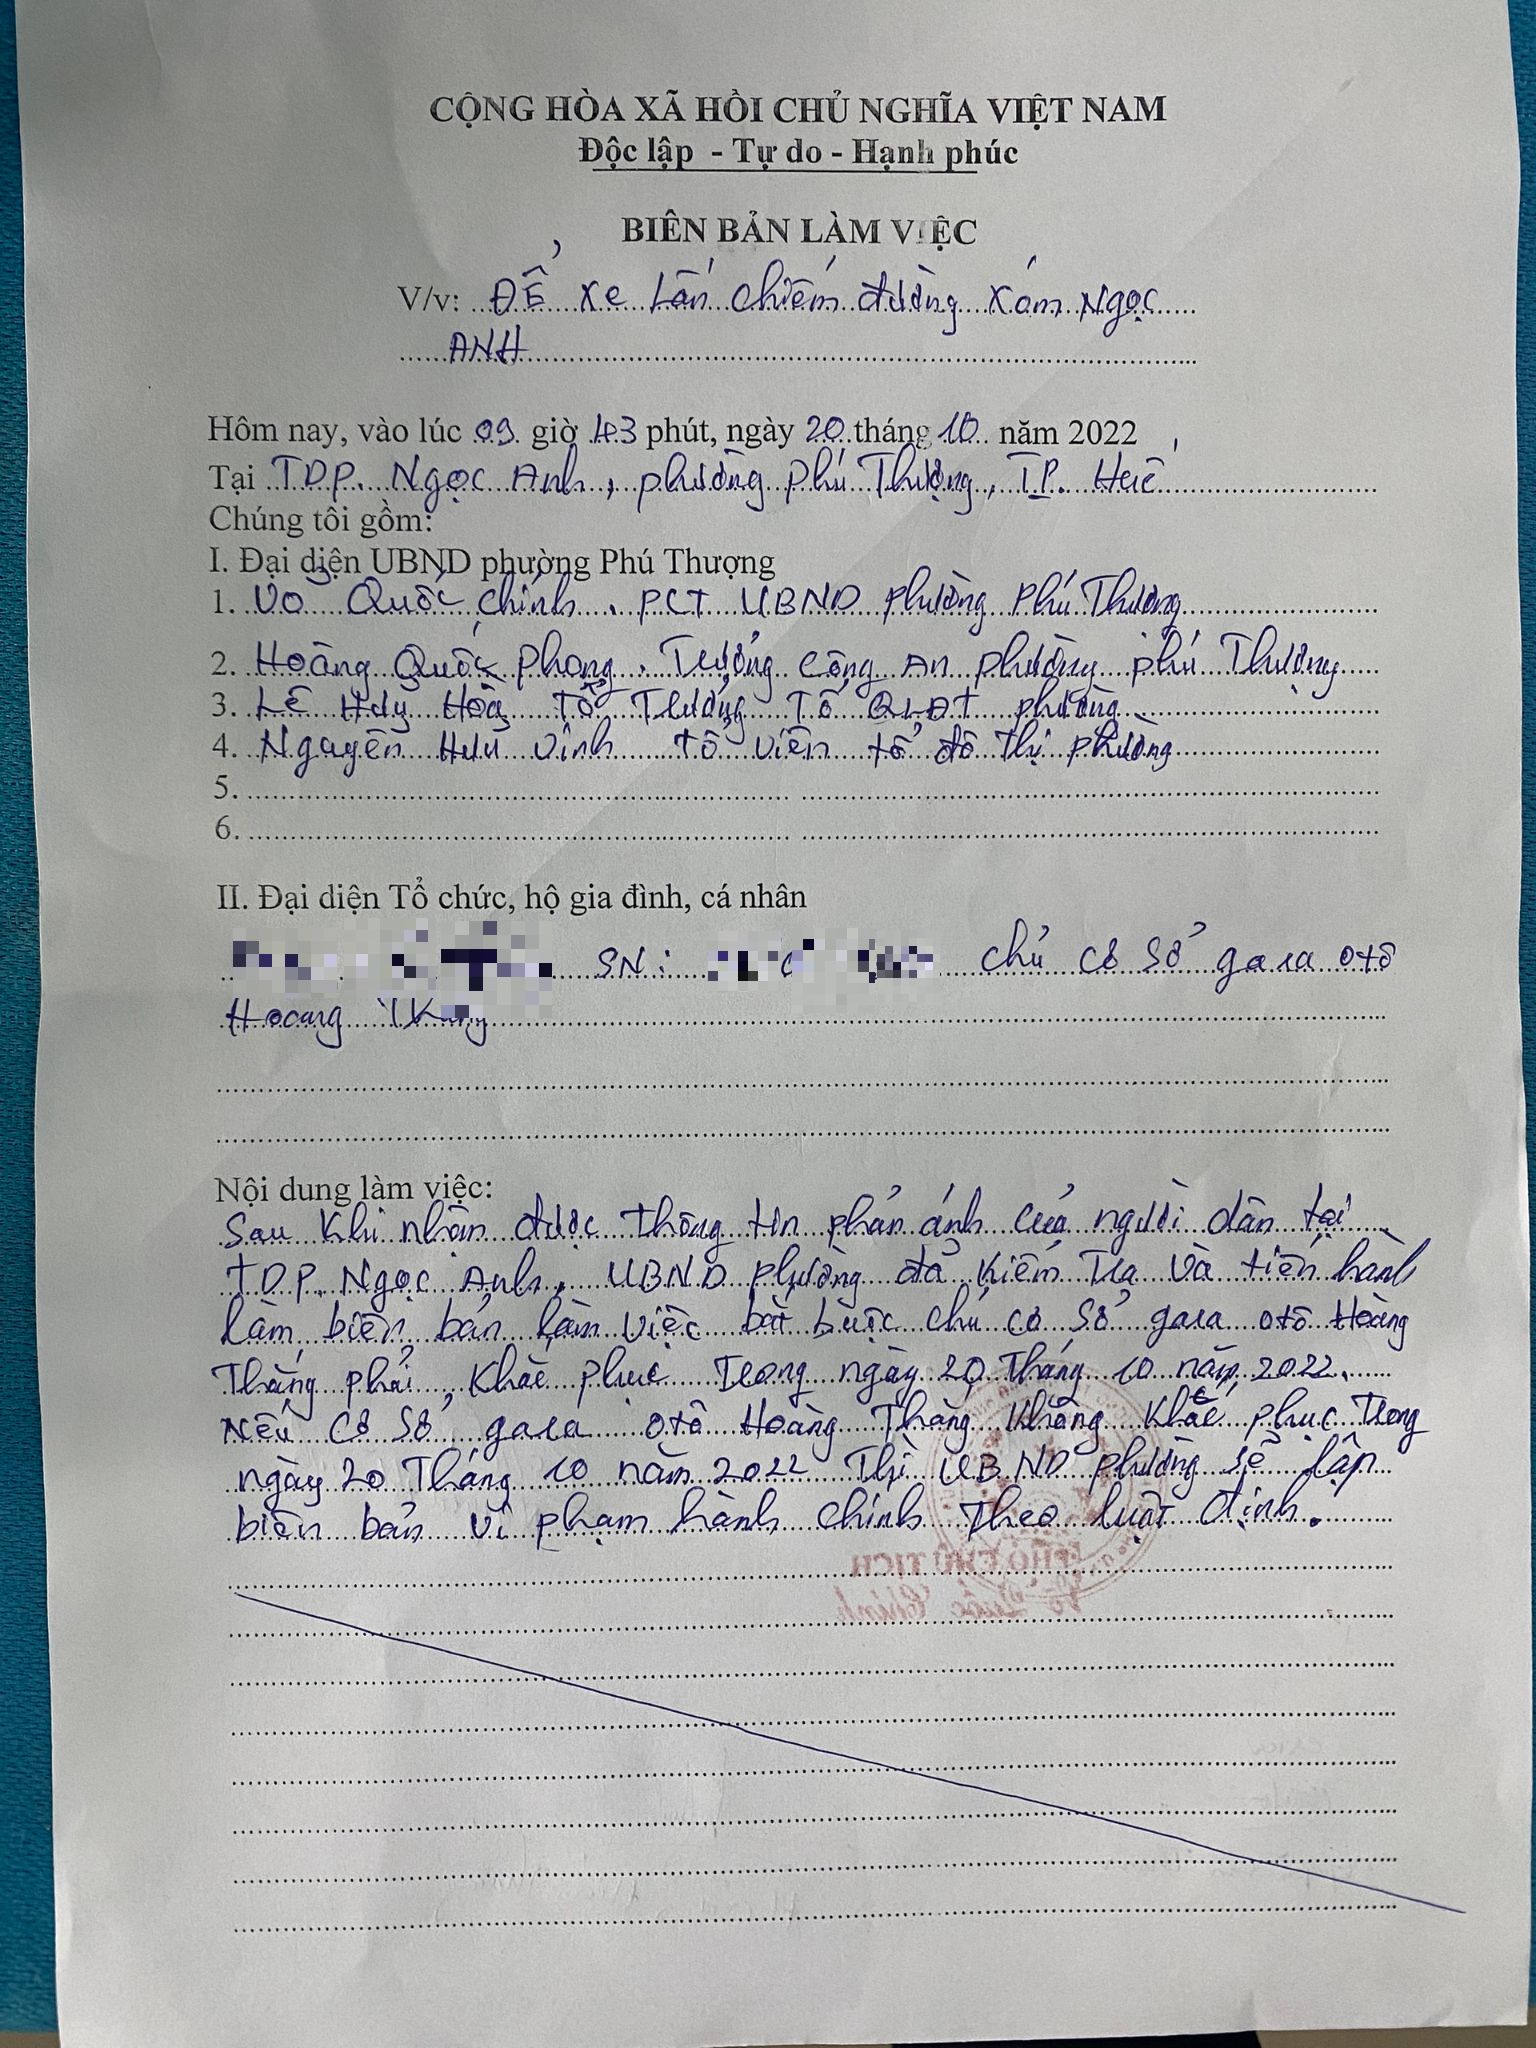 CỘNG HÒA XÃ HỒI CHỦ NGHĨA VIỆT NAM
Độc lập - Tự do - Hạnh phúc
BIÊN BẢN LÀM VIỆC
V/v: ĐỂ xe lấn chiếm đường xóm Ngọc
ANH
Hôm nay, vào lúc 09 giờ 43 phút, ngày 20 tháng 10 năm 2022
Tại TDP. Ngọc Anh, phường Phú Thượng, TP. Huế
Chúng tôi gồm:
I. Đại diện UBND phường Phú Thượng
1. Võ Quốc Chính. PCT UBND Phường Phú Thượng
2. Hoàng Quốc Phong. Trưởng Công An phường phú Thượng
3. Lê Huy Hoà Tổ Trưởng Tổ QLĐT phường
4. Nguyễn Hữu Vinh tổ viên tổ đô Thị phường
5.
6.
II. Đại diện Tổ chức, hộ gia đình, cá nhân
SN: chủ cơ sở gara otô
Hoang
Nội dung làm việc:
Sau Khi nhận được Thông tin phản ánh của người dân tại
TDP. Ngọc Anh. UBND phường đã kiểm Tra Và tiến hành
làm biên bản làm việc bắt buộc chủ cơ sở gara otô Hoàng
Thắng phải Khắc phục Trong ngày 20 Tháng 10 năm 2022.
Nếu Cơ sở gara otô Hoàng Thắng không Khắc phục Trong
ngày 20 Tháng 10 năm 2022 Thì UBND phường sẽ lập
biên bản vi phạm hành chính Theo luật định.
PHÓ CHỦ TỊCH
Võ Quốc Chính